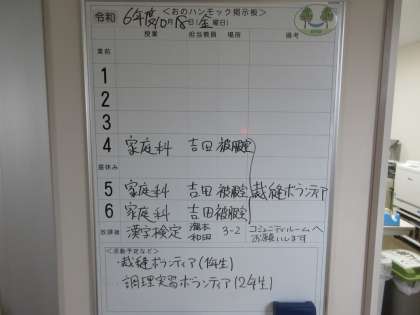 令和 6年度10月18日(金曜日) <おのハンモック掲示板>
授業 担当教員 場所 備考
業前
1
2
3
4 家庭科 吉田 被服室
昼休み
5 家庭科 吉田 被服室 裁縫ボランティア
6 家庭科 吉田 被服室
放課後 漢字検定 瀧本 和田 3-2 コミュニティルームへ お願いします
<活動予定など>
・裁縫ボランティア(1年生)
・調理実習ボランティア(2年生)